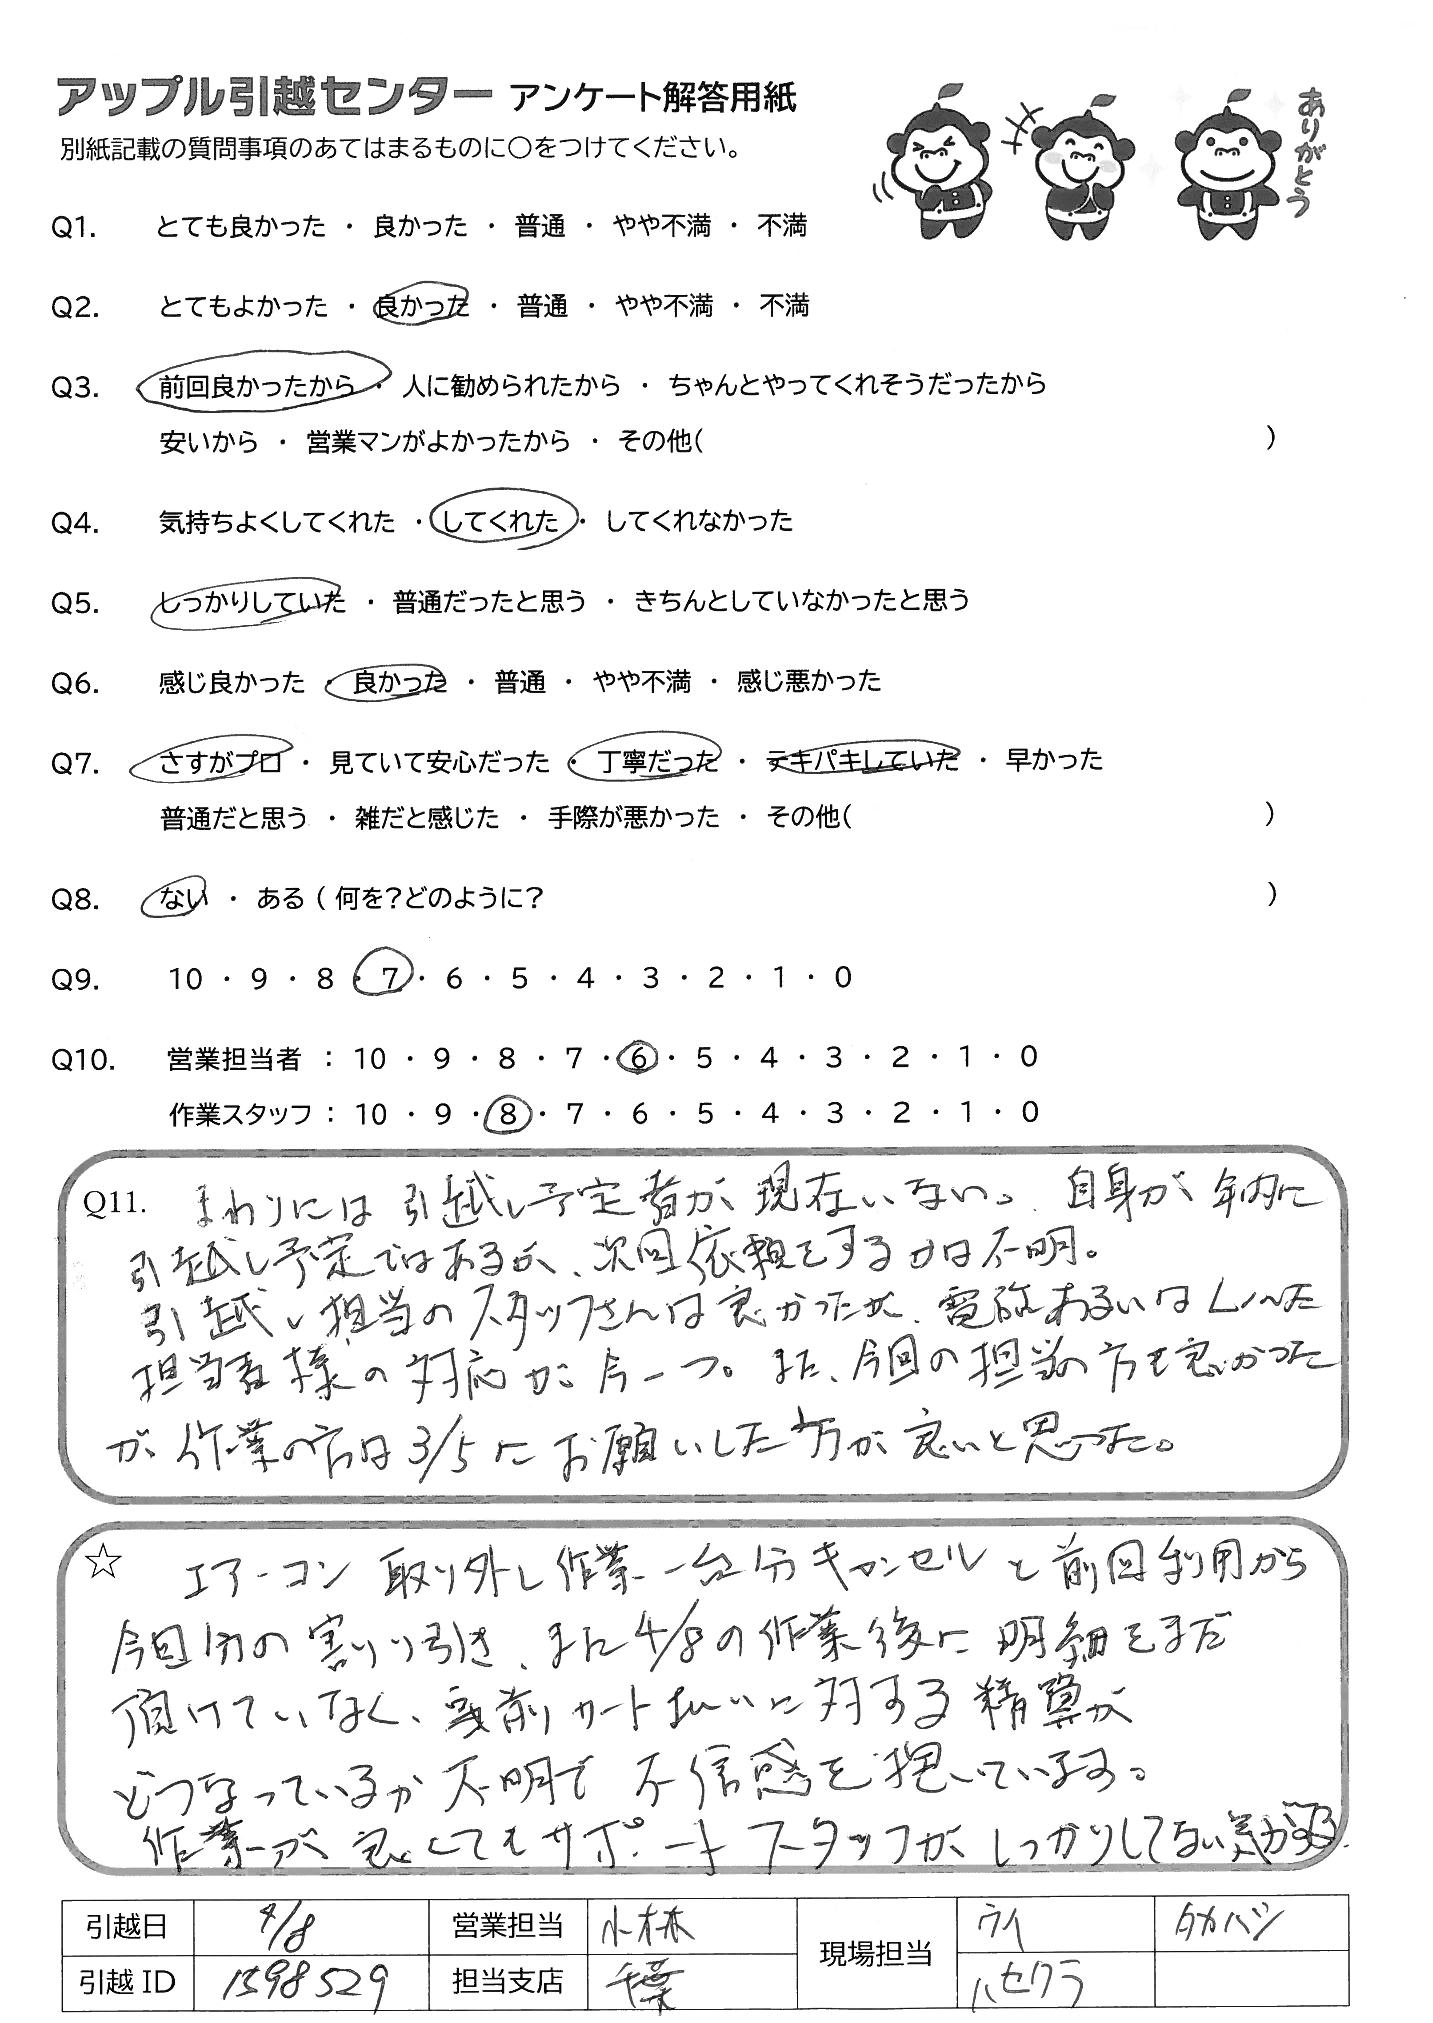 アップル引越センター アンケート解答用紙
ありがとう
別紙記載の質問事項のあてはまるものに○をつけてください。
Q1. とても良かった ・ 良かった ・ 普通 ・ やや不満 ・ 不満
Q2. とてもよかった ・ 良かった ・ 普通 ・ やや不満 ・ 不満
Q3. 前回良かったから ・ 人に勧められたから ・ ちゃんとやってくれそうだったから
安いから ・ 営業マンがよかったから ・ その他( )
Q4. 気持ちよくしてくれた ・ してくれた ・ してくれなかった
Q5. しっかりしていた ・ 普通だったと思う ・ きちんとしていなかったと思う
Q6. 感じ良かった ・ 良かった ・ 普通 ・ やや不満 ・ 感じ悪かった
Q7. さすがプロ ・ 見ていて安心だった ・ 丁寧だった ・ テキパキしていた ・ 早かった
普通だと思う ・ 雑だと感じた ・ 手際が悪かった ・ その他( )
Q8. ない ・ ある ( 何を?どのように? )
Q9. 10 ・ 9 ・ 8 ・ 7 ・ 6 ・ 5 ・ 4 ・ 3 ・ 2 ・ 1 ・ 0
Q10. 営業担当者 : 10 ・ 9 ・ 8 ・ 7 ・ 6 ・ 5 ・ 4 ・ 3 ・ 2 ・ 1 ・ 0
作業スタッフ : 10 ・ 9 ・ 8 ・ 7 ・ 6 ・ 5 ・ 4 ・ 3 ・ 2 ・ 1 ・ 0
Q11. まわりには引越し予定者が現在いない。自身が年内に
引越し予定ではあるが、次回依頼をするかは不明。
引越し担当のスタッフさんは良かったが、電話あるいは
担当者様の対応が今一つ。また、今回の担当の方も良かった
が作業の方は3/5にお願いした方が良いと思った。
☆ エアーコン取り外し作業一台分キャンセルと前回利用から
今回分の割り引き、また4/8の作業後に明細をまだ
頂けていなく、事前カード払いに対する精算が
どうなっているか不明で不信感を抱いています。
作業が良くてもサポートスタッフがしっかりしてない気がする。
引越日 4/8 営業担当 小林 現場担当 ウイ タカハシ
引越ID 1598529 担当支店 千葉 ハセクラ